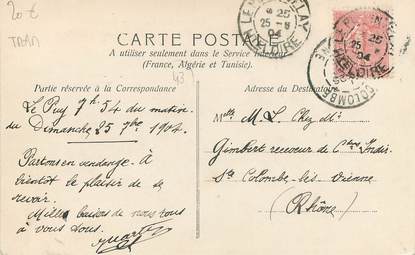 20€
TRAM
CARTE POSTALE
A utiliser seulement dans le Service intérieur
(France, Algérie et Tunisie).
Partie réservée à la Correspondance
Adresse du Destinataire
Le Puy 7h 54 du matin
du Dimanche 25 7bre 1904.
Partons en vendange. À
bientôt le plaisir de se
revoir.
Mille baisers de nous tous
à vous tous.
M. L. Chez Mr
Gimbert receveur de Ctions Indir.
Ste Colombe les Vienne
(Rhône)
25
25 -9
04
HTE LOIRE
COLOMBE